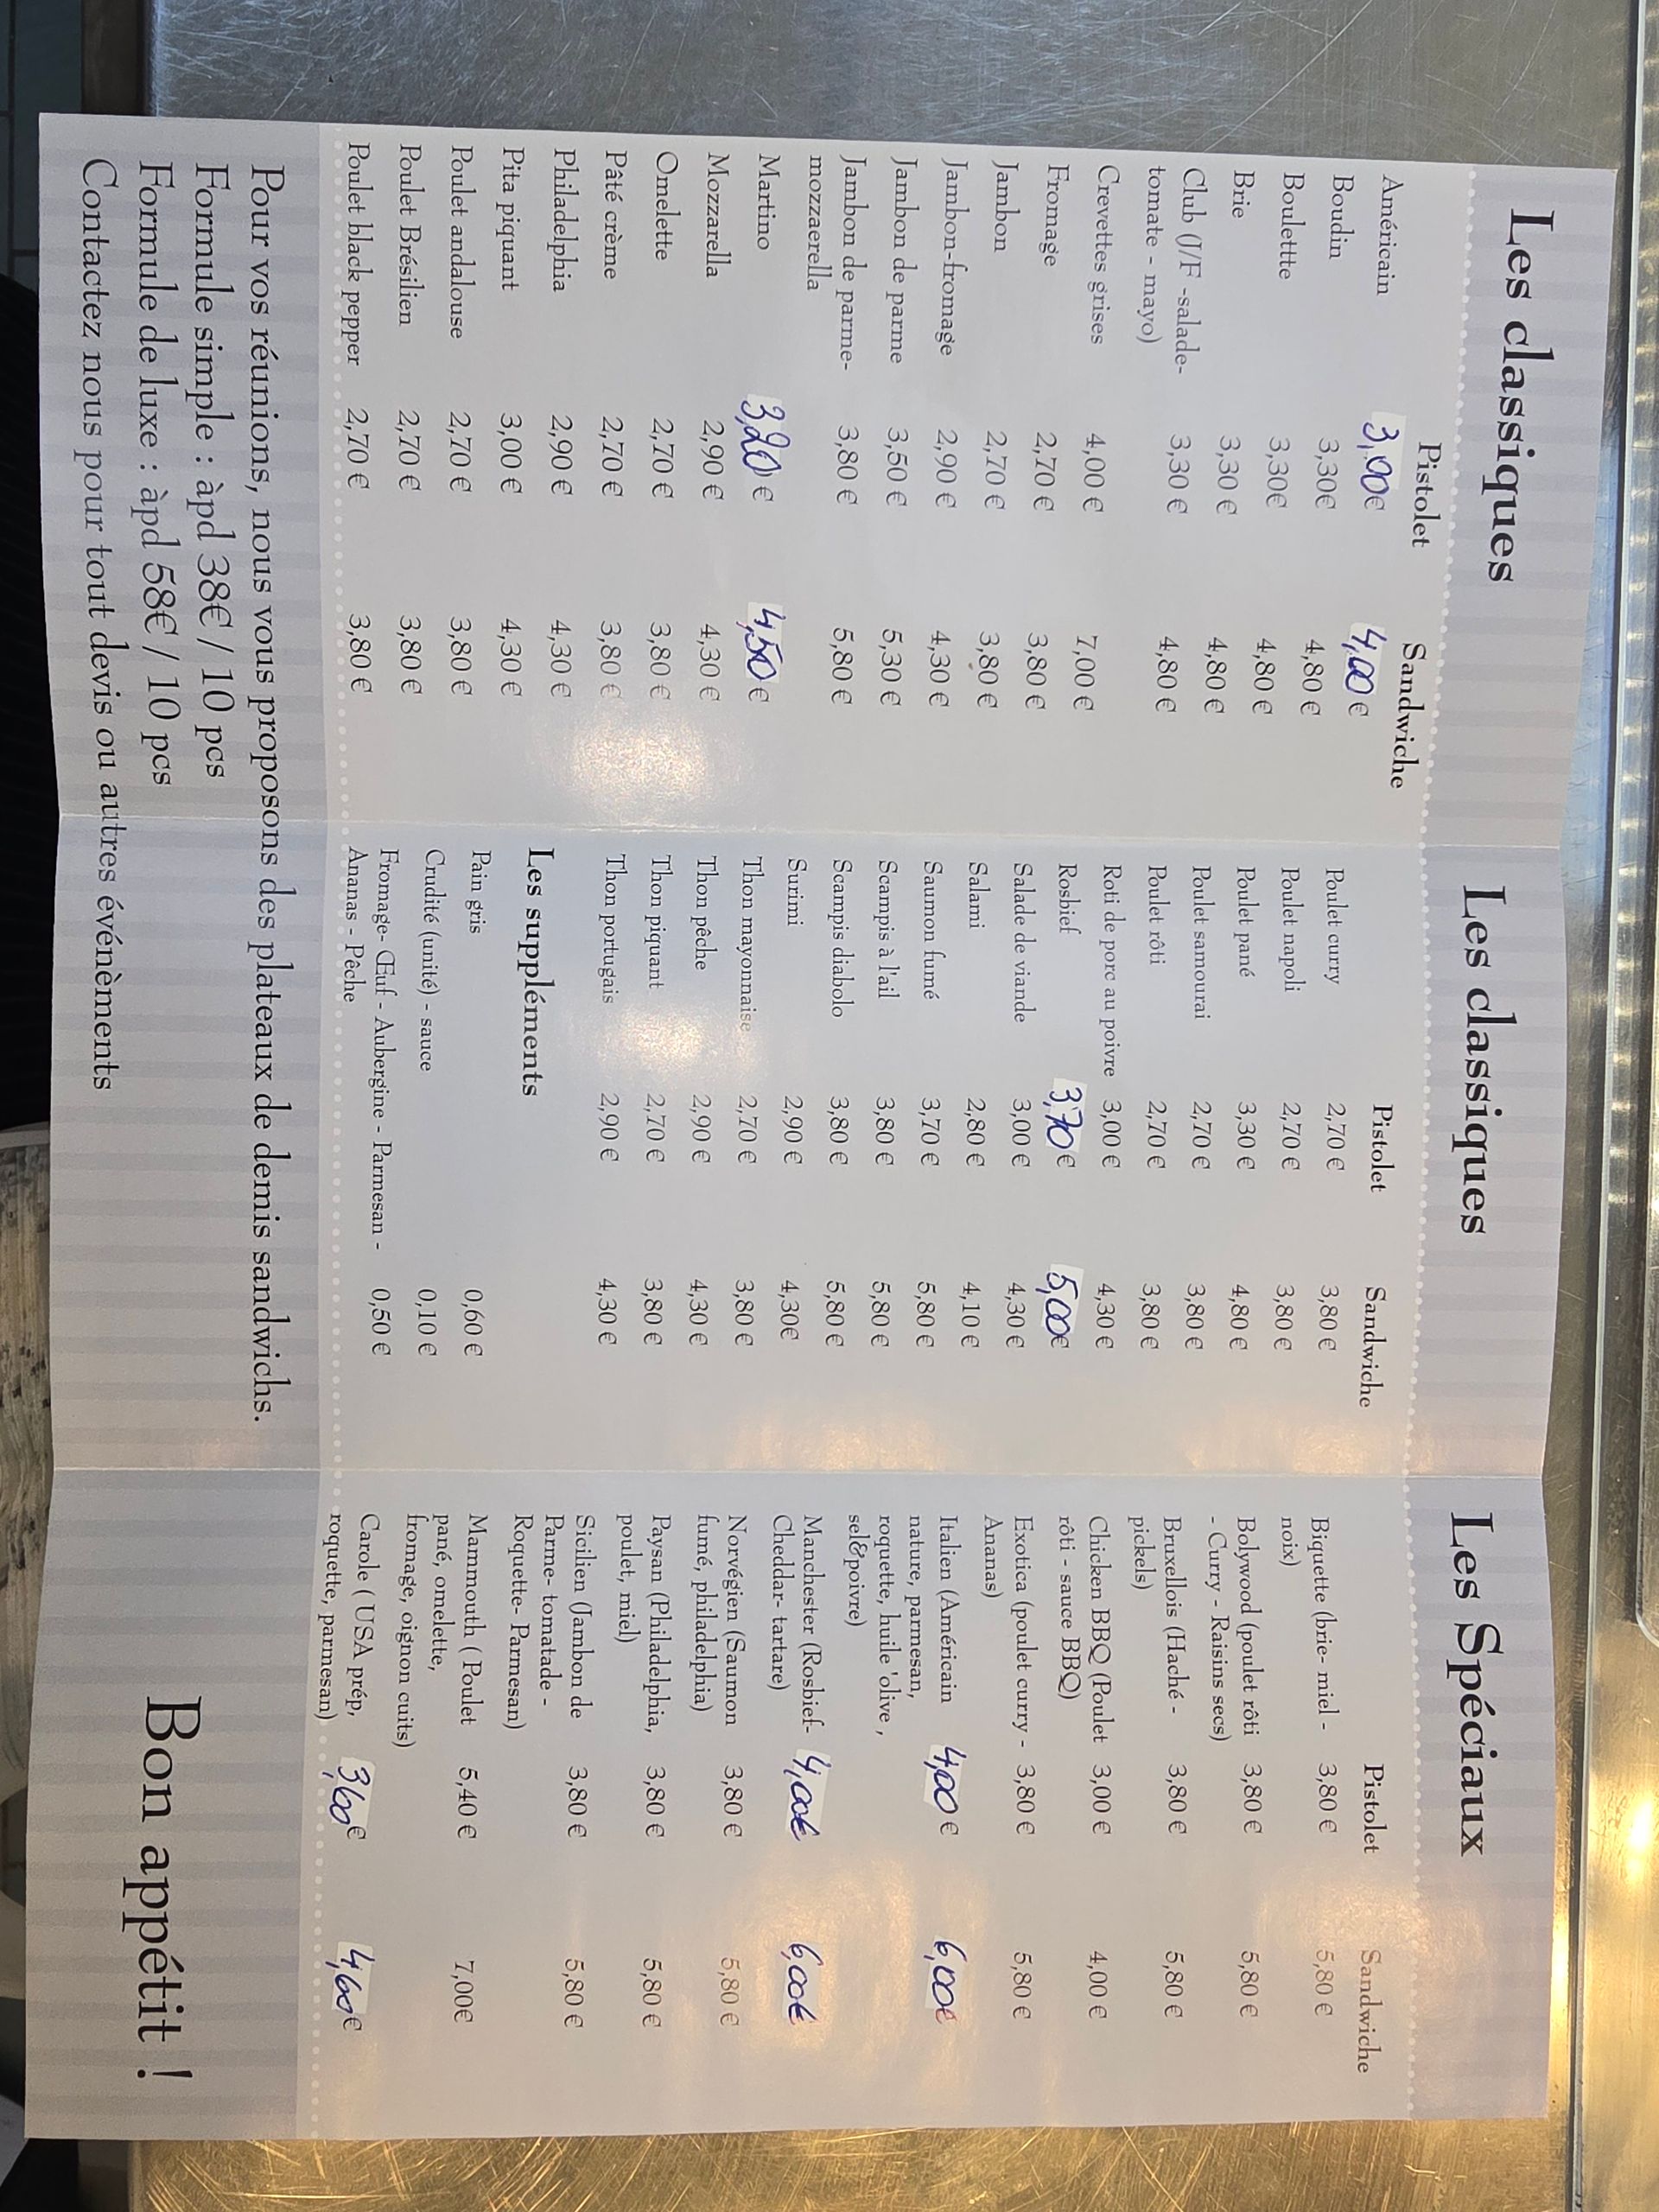 Les classiques
Pistolet Sandwiche
Américain 3,00€ 4,00 €
Boudin 3,30€ 4,80 €
Boulettte 3,30€ 4,80 €
Brie 3,30 € 4,80 €
Club (J/F -salade- 3,30 € 4,80 €
tomate - mayo)
Crevettes grises 4,00 € 7,00 €
Fromage 2,70 € 3,80 €
Jambon 2,70 € 3,80 €
Jambon-fromage 2,90 € 4,30 €
Jambon de parme 3,50 € 5,30 €
Jambon de parme- 3,80 € 5,80 €
mozzaerella
Martino 3,20 € 4,50 €
Mozzarella 2,90 € 4,30 €
Omelette 2,70 € 3,80 €
Pâté crème 2,70 € 3,80 €
Philadelphia 2,90 € 4,30 €
Pita piquant 3,00 € 4,30 €
Poulet andalouse 2,70 € 3,80 €
Poulet Brésilien 2,70 € 3,80 €
Poulet black pepper 2,70 € 3,80 €
Les classiques
Pistolet Sandwiche
Poulet curry 2,70 € 3,80 €
Poulet napoli 2,70 € 3,80 €
Poulet pané 3,30 € 4,80 €
Poulet samourai 2,70 € 3,80 €
Poulet rôti 2,70 € 3,80 €
Roti de porc au poivre 3,00 € 4,30 €
Rosbief 3,70 € 5,00€
Salade de viande 3,00 € 4,30 €
Salami 2,80 € 4,10 €
Saumon fumé 3,70 € 5,80 €
Scampis à l'ail 3,80 € 5,80 €
Scampis diabolo 3,80 € 5,80 €
Surimi 2,90 € 4,30€
Thon mayonnaise 2,70 € 3,80 €
Thon pêche 2,90 € 4,30 €
Thon piquant 2,70 € 3,80 €
Thon portugais 2,90 € 4,30 €
Les suppléments
Pain gris 0,60 €
Crudité (unité) - sauce 0,10 €
Fromage- Œuf - Aubergine - Parmesan - 0,50 €
Ananas - Pêche
Les Spéciaux
Pistolet Sandwiche
Biquette (brie- miel - 3,80 € 5,80 €
noix)
Bolywood (poulet rôti 3,80 € 5,80 €
- Curry - Raisins secs)
Bruxellois (Haché - 3,80 € 5,80 €
pickels)
Chicken BBQ (Poulet 3,00 € 4,00 €
rôti - sauce BBQ)
Exotica (poulet curry - 3,80 € 5,80 €
Ananas)
Italien (Américain 4,00 € 6,00€
nature, parmesan,
roquette, huile 'olive ,
sel&poivre)
Manchester (Rosbief- 4,00€ 6,00€
Cheddar- tartare)
Norvégien (Saumon 3,80 € 5,80 €
fumé, philadelphia)
Paysan (Philadelphia, 3,80 € 5,80 €
poulet, miel)
Sicilien (Jambon de 3,80 € 5,80 €
Parme- tomatade -
Roquette- Parmesan)
Mammouth ( Poulet 5,40 € 7,00€
pané, omelette,
fromage, oignon cuits)
Carole ( USA prép, 3,60€ 4,60€
roquette, parmesan)
Pour vos réunions, nous vous proposons des plateaux de demis sandwichs.
Formule simple : àpd 38€ / 10 pcs
Formule de luxe : àpd 58€ / 10 pcs
Contactez nous pour tout devis ou autres événèments
Bon appétit !